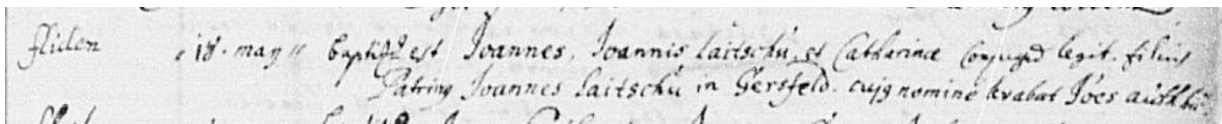 fliden " 18. may " baptisq est Joannes, Joannis Laitschů, et Catharinæ conjugū legit. filius
Patrinq Joannes Laitschů in Gersfeld. cujq nomine levabat Joēs